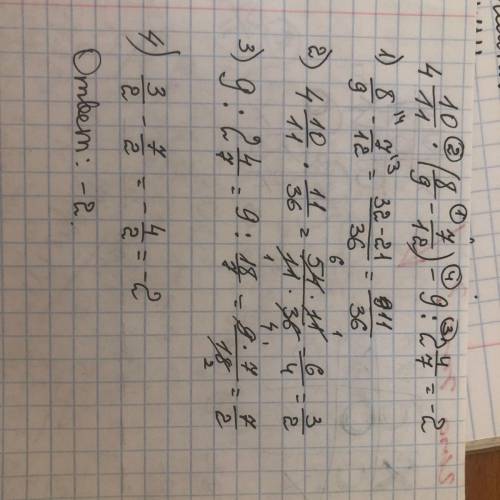 4 10/11 · (8/9 - 7/12) - 9 : 2 4/7 = -2
② ① ④ ③
1) 8/9 - 7/12 = 32-21/36 = 11/36
2) 4 10/11 · 11/36 = 54·11/11·36 = 6/4 = 3/2
3) 9 : 2 4/7 = 9 : 18/7 = 9·7/18 = 7/2
4) 3/2 - 7/2 = -4/2 = -2
Ответ: -2.